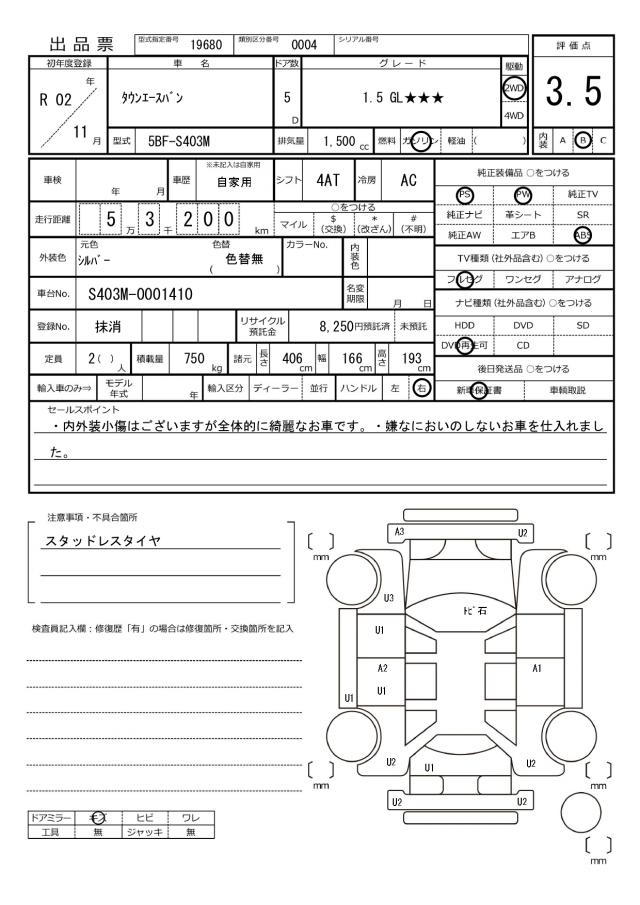 出品票
型式指定番号 19680 類別区分番号 0004 シリアル番号
評価点
3.5
内装 A B C
初年度登録 車名 ドア数 グレード 駆動
R 02 年 11 月
タウンエースバン
5 D
1.5 GL★★★
2WD
4WD
型式 5BF-S403M 排気量 1,500 cc 燃料 ガソリン 軽油 ( )
車検 年 月 車歴 ※未記入は自家用 自家用 シフト 4AT 冷房 AC
走行距離 5 万 3 千 2 0 0 km
○をつける
マイル $(交換) *(改ざん) #(不明)
外装色 元色 シルバー 色替 ( 色替無 ) カラーNo. 内装色
車台No. S403M-0001410 名変期限 月 日
登録No. 抹消 リサイクル預託金 8,250円預託済 未預託
定員 2( ) 人 積載量 750 kg 諸元 長さ 406 cm 幅 166 cm 高さ 193 cm
輸入車のみ⇒ モデル年式 年 輸入区分 ディーラー 並行 ハンドル 左 右
純正装備品 ○をつける
PS PW 純正TV
純正ナビ 革シート SR
純正AW エアB ABS
TV種類(社外品含む) ○をつける
フルセグ ワンセグ アナログ
ナビ種類(社外品含む) ○をつける
HDD DVD SD
DVD再生可 CD
後日発送品 ○をつける
新車保証書 車輌取説
セールスポイント
・内外装小傷はございますが全体的に綺麗なお車です。・嫌なにおいのしないお車を仕入れまし
た。
注意事項・不具合箇所
スタッドレスタイヤ
検査員記入欄：修復歴「有」の場合は修復箇所・交換箇所を記入
ドアミラー キズ ヒビ ワレ
工具 無 ジャッキ 無
A3 U2
[ ] mm
[ ] mm
U3
トビ石
U1
A2 A1
U1
U1
U2 U1 U2
[ ] mm
[ ] mm
U2 U2
[ ] mm